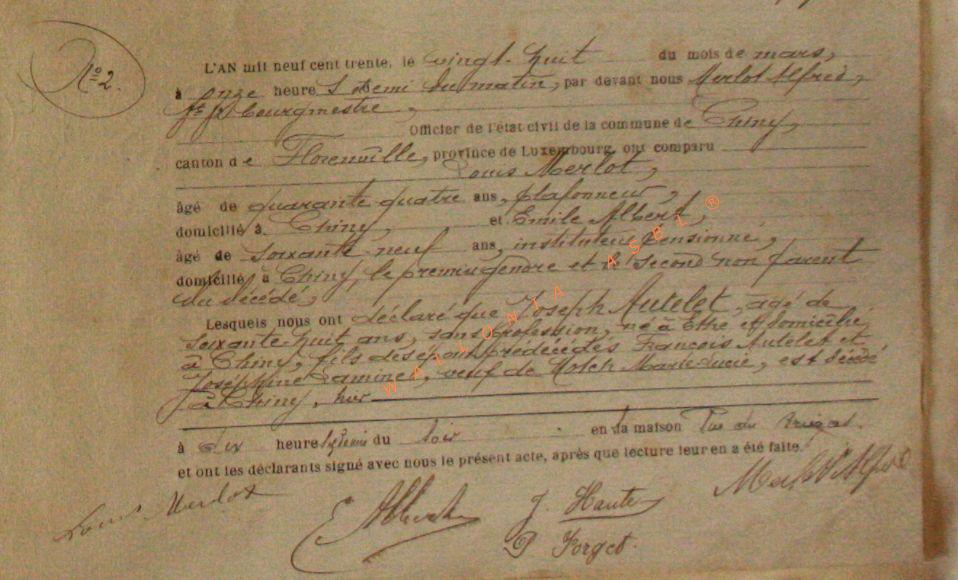 N° 2.
L'AN mil neuf cent trente, le vingt-huit du mois de mars,
à onze heures & demi du matin, par devant nous Merlot Alfred,
Bourgmestre,
Officier de l'état civil de la commune de Chiny,
canton de Florenville, province de Luxembourg, ont comparu
Louis Merlot,
âgé de quarante quatre ans, plafonneur,
domicilié à Chiny, et Emile Albert,
âgé de soixante neuf ans, instituteur pensionné,
domicilié à Chiny, le premier gendre et le second non parent
du décédé,
Lesquels nous ont déclaré que Joseph Autelet, âgé de
soixante huit ans, sans profession, né à Ethe et domicilié
à Chiny, fils des époux prédécédés François Autelet et
Joséphine Camine, veuf de Marie Lucie, est décédé
à Chiny, hier
à dix heures & demi du soir en sa maison Rue du
et ont les déclarants signé avec nous le présent acte, après que lecture leur en a été faite.
Louis Merlot
E Albert
J. Haute
Merlot Alfred
P Forget.
WALLONIA ASBL ®